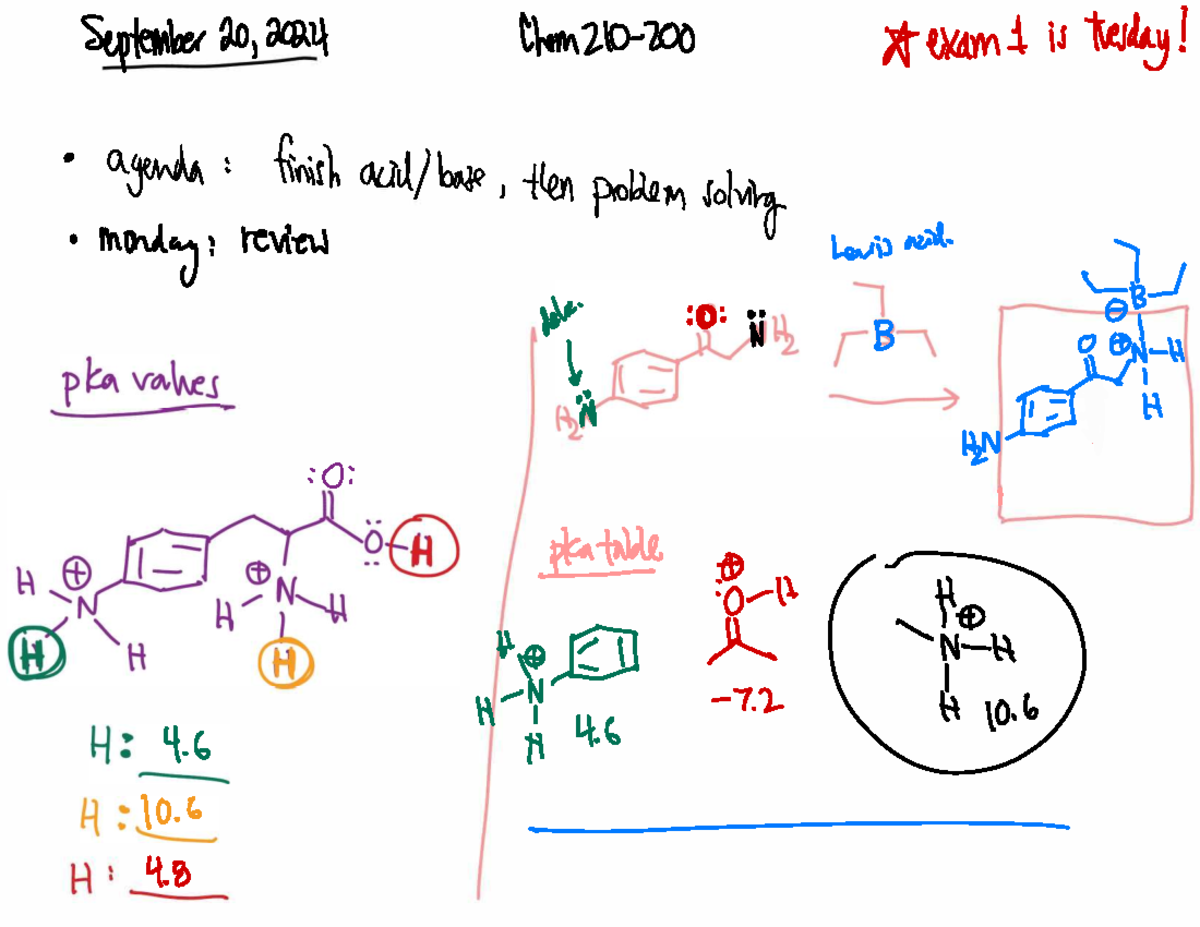 September 20, 2024
Chem 210-200
* exam 1 is tuesday!
• agenda: finish acid/base, then problem solving
• monday: review
pka values
:O:
O-H
H
⊕
N
H
H
⊕
N
H
H
H
H: 4.6
H: 10.6
H: 4.8
:O:
N̈H₂
H₂N̈
Lewis acid.
B
B
⊖
O
⊕
N-H
H
H₂N
pka table
H
⊕
H
N
H
4.6
⊕
:O-H
-7.2
H
⊕
N-H
H
10.6